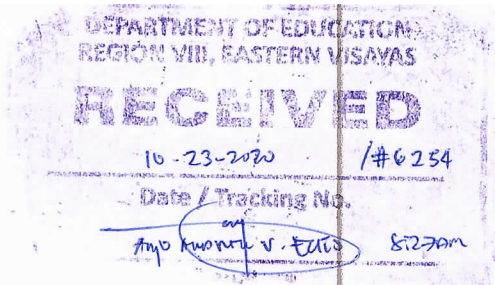 DEPARTMENT OF EDUCATION
REGION VIII, EASTERN VISAYAS
RECEIVED
10-23-2020 /#6254
Date / Tracking No.
V. 8:27AM